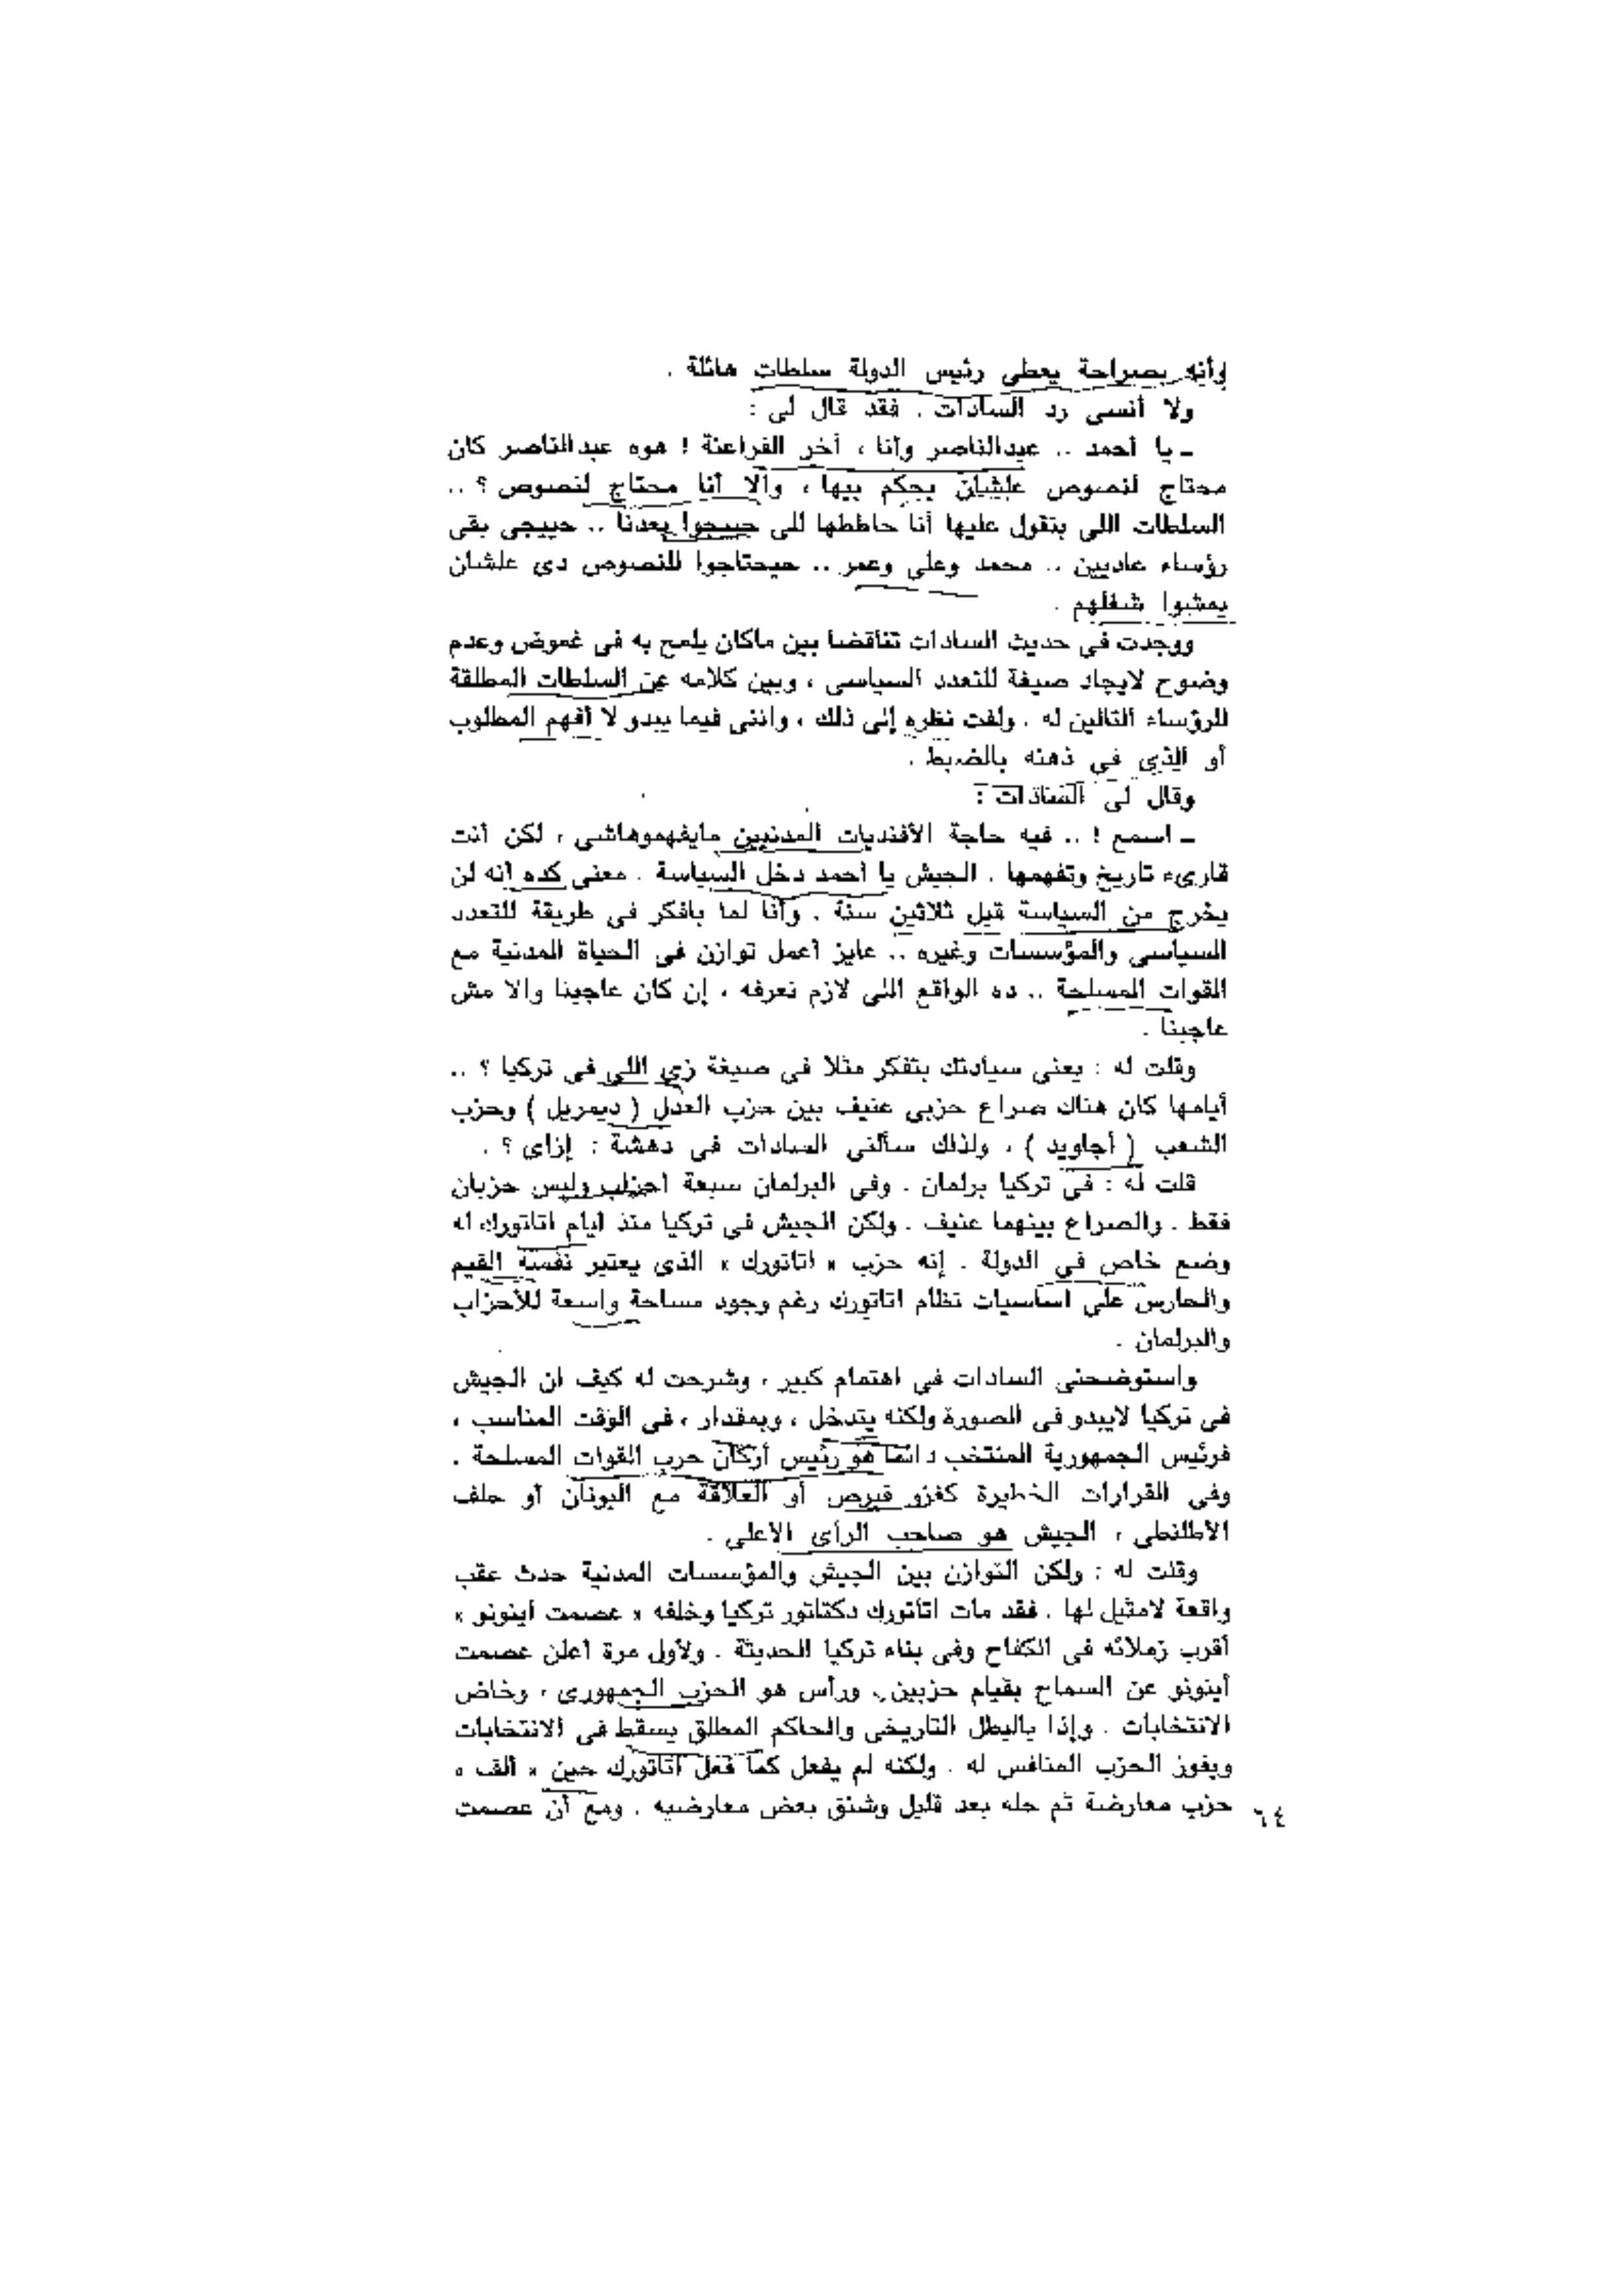 وأنه بصراحة يعطى رئيس الدولة سلطات هائلة .
ولا أنسى رد السادات . فقد قال لى :
ـ يا أحمد .. عبدالناصر وأنا ، أخر الفراعنة ! هوه عبدالناصر كان
محتاج لنصوص علشان يحكم بيها ، والا أنا محتاج لنصوص ؟ ..
السلطات اللى بتقول عليها أنا حاططها للى حييجوا بعدنا .. حييجى بقى
رؤساء عاديين .. محمد وعلى وعمر .. حيحتاجوا للنصوص دى علشان
يمشوا شغلهم .
ووجدت فى حديث السادات تناقضا بين ماكان يلمح به فى غموض وعدم
وضوح لايجاد صيغة للتعدد السياسى ، وبين كلامه عن السلطات المطلقة
للرؤساء التالين له . ولفت نظره إلى ذلك ، واننى فيما يبدو لا أفهم المطلوب
أو الذى فى ذهنه بالضبط .
وقال لى السادات :
ـ اسمع ! .. فيه حاجة الأفنديات المدنيين مايفهموهاشى ، لكن أنت
قارىء تاريخ وتفهمها . الجيش يا أحمد دخل السياسة . معنى كده أنه لن
يخرج من السياسة قبل ثلاثين سنة . وأنا لما بافكر فى طريقة للتعدد
السياسى والمؤسسات وغيره .. عايز أعمل توازن فى الحياة المدنية مع
القوات المسلحة .. ده الواقع اللى لازم نعرفه ، إن كان عاجبنا والا مش
عاجبنا .
وقلت له : يعنى سيادتك بتفكر مثلا فى صيغة زى اللى فى تركيا ؟ ..
أيامها كان هناك صراع حزبى عنيف بين حزب العدل ( ديمريل ) وحزب
الشعب ( أجاويد ) ، ولذلك سألنى السادات فى دهشة : إزاى ؟ .
قلت له : فى تركيا برلمان . وفى البرلمان سبعة احزاب وليس حزبان
فقط . والصراع بينهما عنيف . ولكن الجيش فى تركيا منذ أيام اتاتورك له
وضع خاص فى الدولة . إنه حزب « اتاتورك » الذى يعتبر نفسه القيم
والحارس على أساسيات نظام اتاتورك رغم وجود مساحة واسعة للأحزاب
والبرلمان .
واستوضحنى السادات فى اهتمام كبير ، وشرحت له كيف ان الجيش
فى تركيا لايبدو فى الصورة ولكنه يتدخل ، وبمقدار ، فى الوقت المناسب ،
فرئيس الجمهورية المنتخب دائما هو رئيس أركان حرب القوات المسلحة .
وفى القرارات الخطيرة كغزو قبرص أو العلاقة مع اليونان أو حلف
الأطلنطى ، الجيش هو صاحب الرأى الأعلى .
وقلت له : ولكن التوازن بين الجيش والمؤسسات المدنية حدث عقب
واقعة لامثيل لها . فقد مات اتاتورك دكتاتور تركيا وخلفه « عصمت أينونو »
أقرب زملائه فى الكفاح وفى بناء تركيا الحديثة . ولأول مرة أعلن عصمت
أينونو عن السماح بقيام حزبين ، ورأس هو الحزب الجمهورى ، وخاض
الانتخابات . وإذا بالبطل التاريخى والحاكم المطلق يسقط فى الانتخابات
ويفوز الحزب المنافس له . ولكنه لم يفعل كما فعل أتاتورك حين « ألف »
حزب معارضة ثم حله بعد قليل وشنق بعض معارضيه . ومع أن عصمت
٦٤